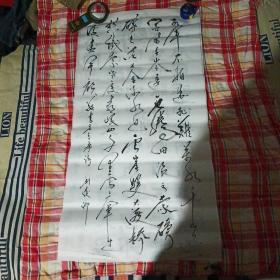 红军不怕远征难万水千山
只等闲五岭逶迤腾细浪乌蒙磅
礴走泥丸金沙水拍云崖暖大渡桥
横铁索寒更喜岷山千里雪三军过
后尽开颜
LION
LION